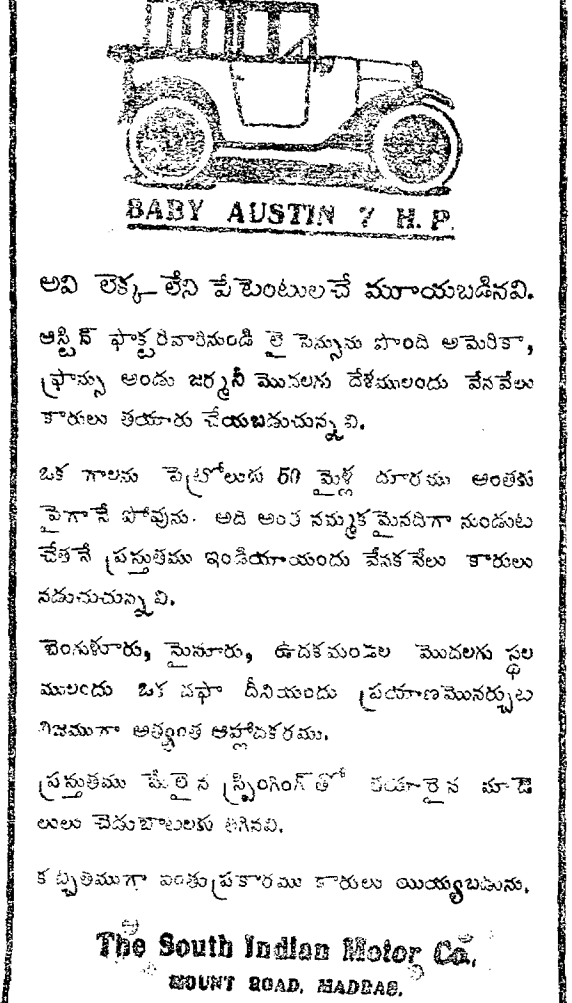 BABY AUSTIN 7 H. P.
అవి లెక్క-లేని పేటెంటులచే మూయబడినవి.
ఆస్టిన్ ఫాక్టరీవారినుండి లై సెన్సును పొంది అమెరికా,
ఫ్రాన్సు అండు జర్మనీ మొదలగు దేశములందు వేనవేలు
కారులు తయారు చేయబడుచున్నవి.
ఒక గాలను పెట్రోలుకు 50 మైళ్ల దూరము అంతకు
పైగానే పోవును. అది అంత నమ్మకమైనదిగా నుండుట
చేతనే ప్రస్తుతము ఇండియాయందు వేనకవేలు కారులు
నడుచుచున్నవి.
బెంగుళూరు, మైసూరు, ఉదకమండల మొదలగు స్థల
ములందు ఒక దఫా దీనియందు ప్రయాణమొనర్చుట
నిజముగా అత్యంత ఆహ్లాదకరము.
ప్రస్తుతము మేలైన స్ప్రింగింగ్‌తో తయారైన మాడె
లులు చెడుబాటలకు తగినవి.
కచ్చితముగా వంతుప్రకారము కారులు యియ్యబడును.
The South Indian Motor Co.,
MOUNT ROAD, MADRAS.